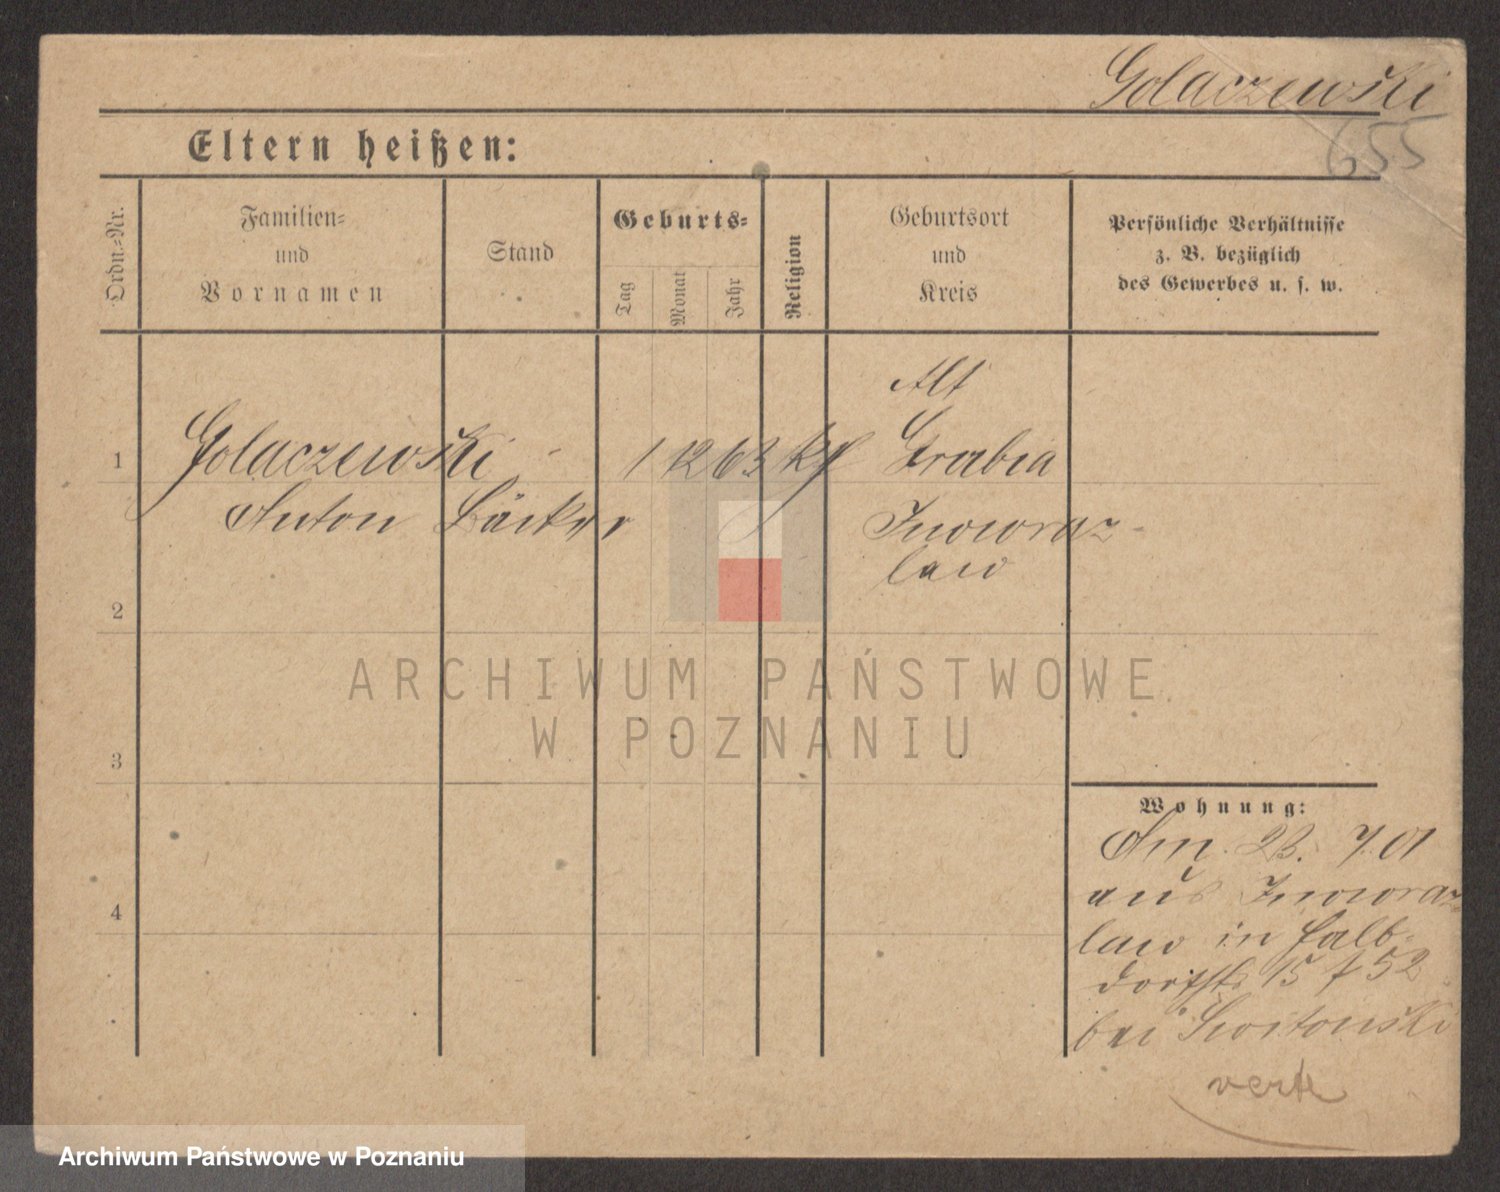 Golaczewski
655
Eltern heißen:
Ordn.-Nr.
Familien-
und
Vornamen
Stand
Geburts-
Tag
Monat
Jahr
Religion
Geburtsort
und
Kreis
Persönliche Verhältnisse
z. B. bezüglich
des Gewerbes u. s. w.
Alt
1 Golaczewski - 1 12 63 kt Grabia
Anton Bäcker Inowraz-
law
2
3
4
Wohnung:
Am 23. 7 01
aus Inowraz
law in Halb-
dorfstr 15
bei
verte
ARCHIWUM PAŃSTWOWE
W POZNANIU
Archiwum Państwowe w Poznaniu